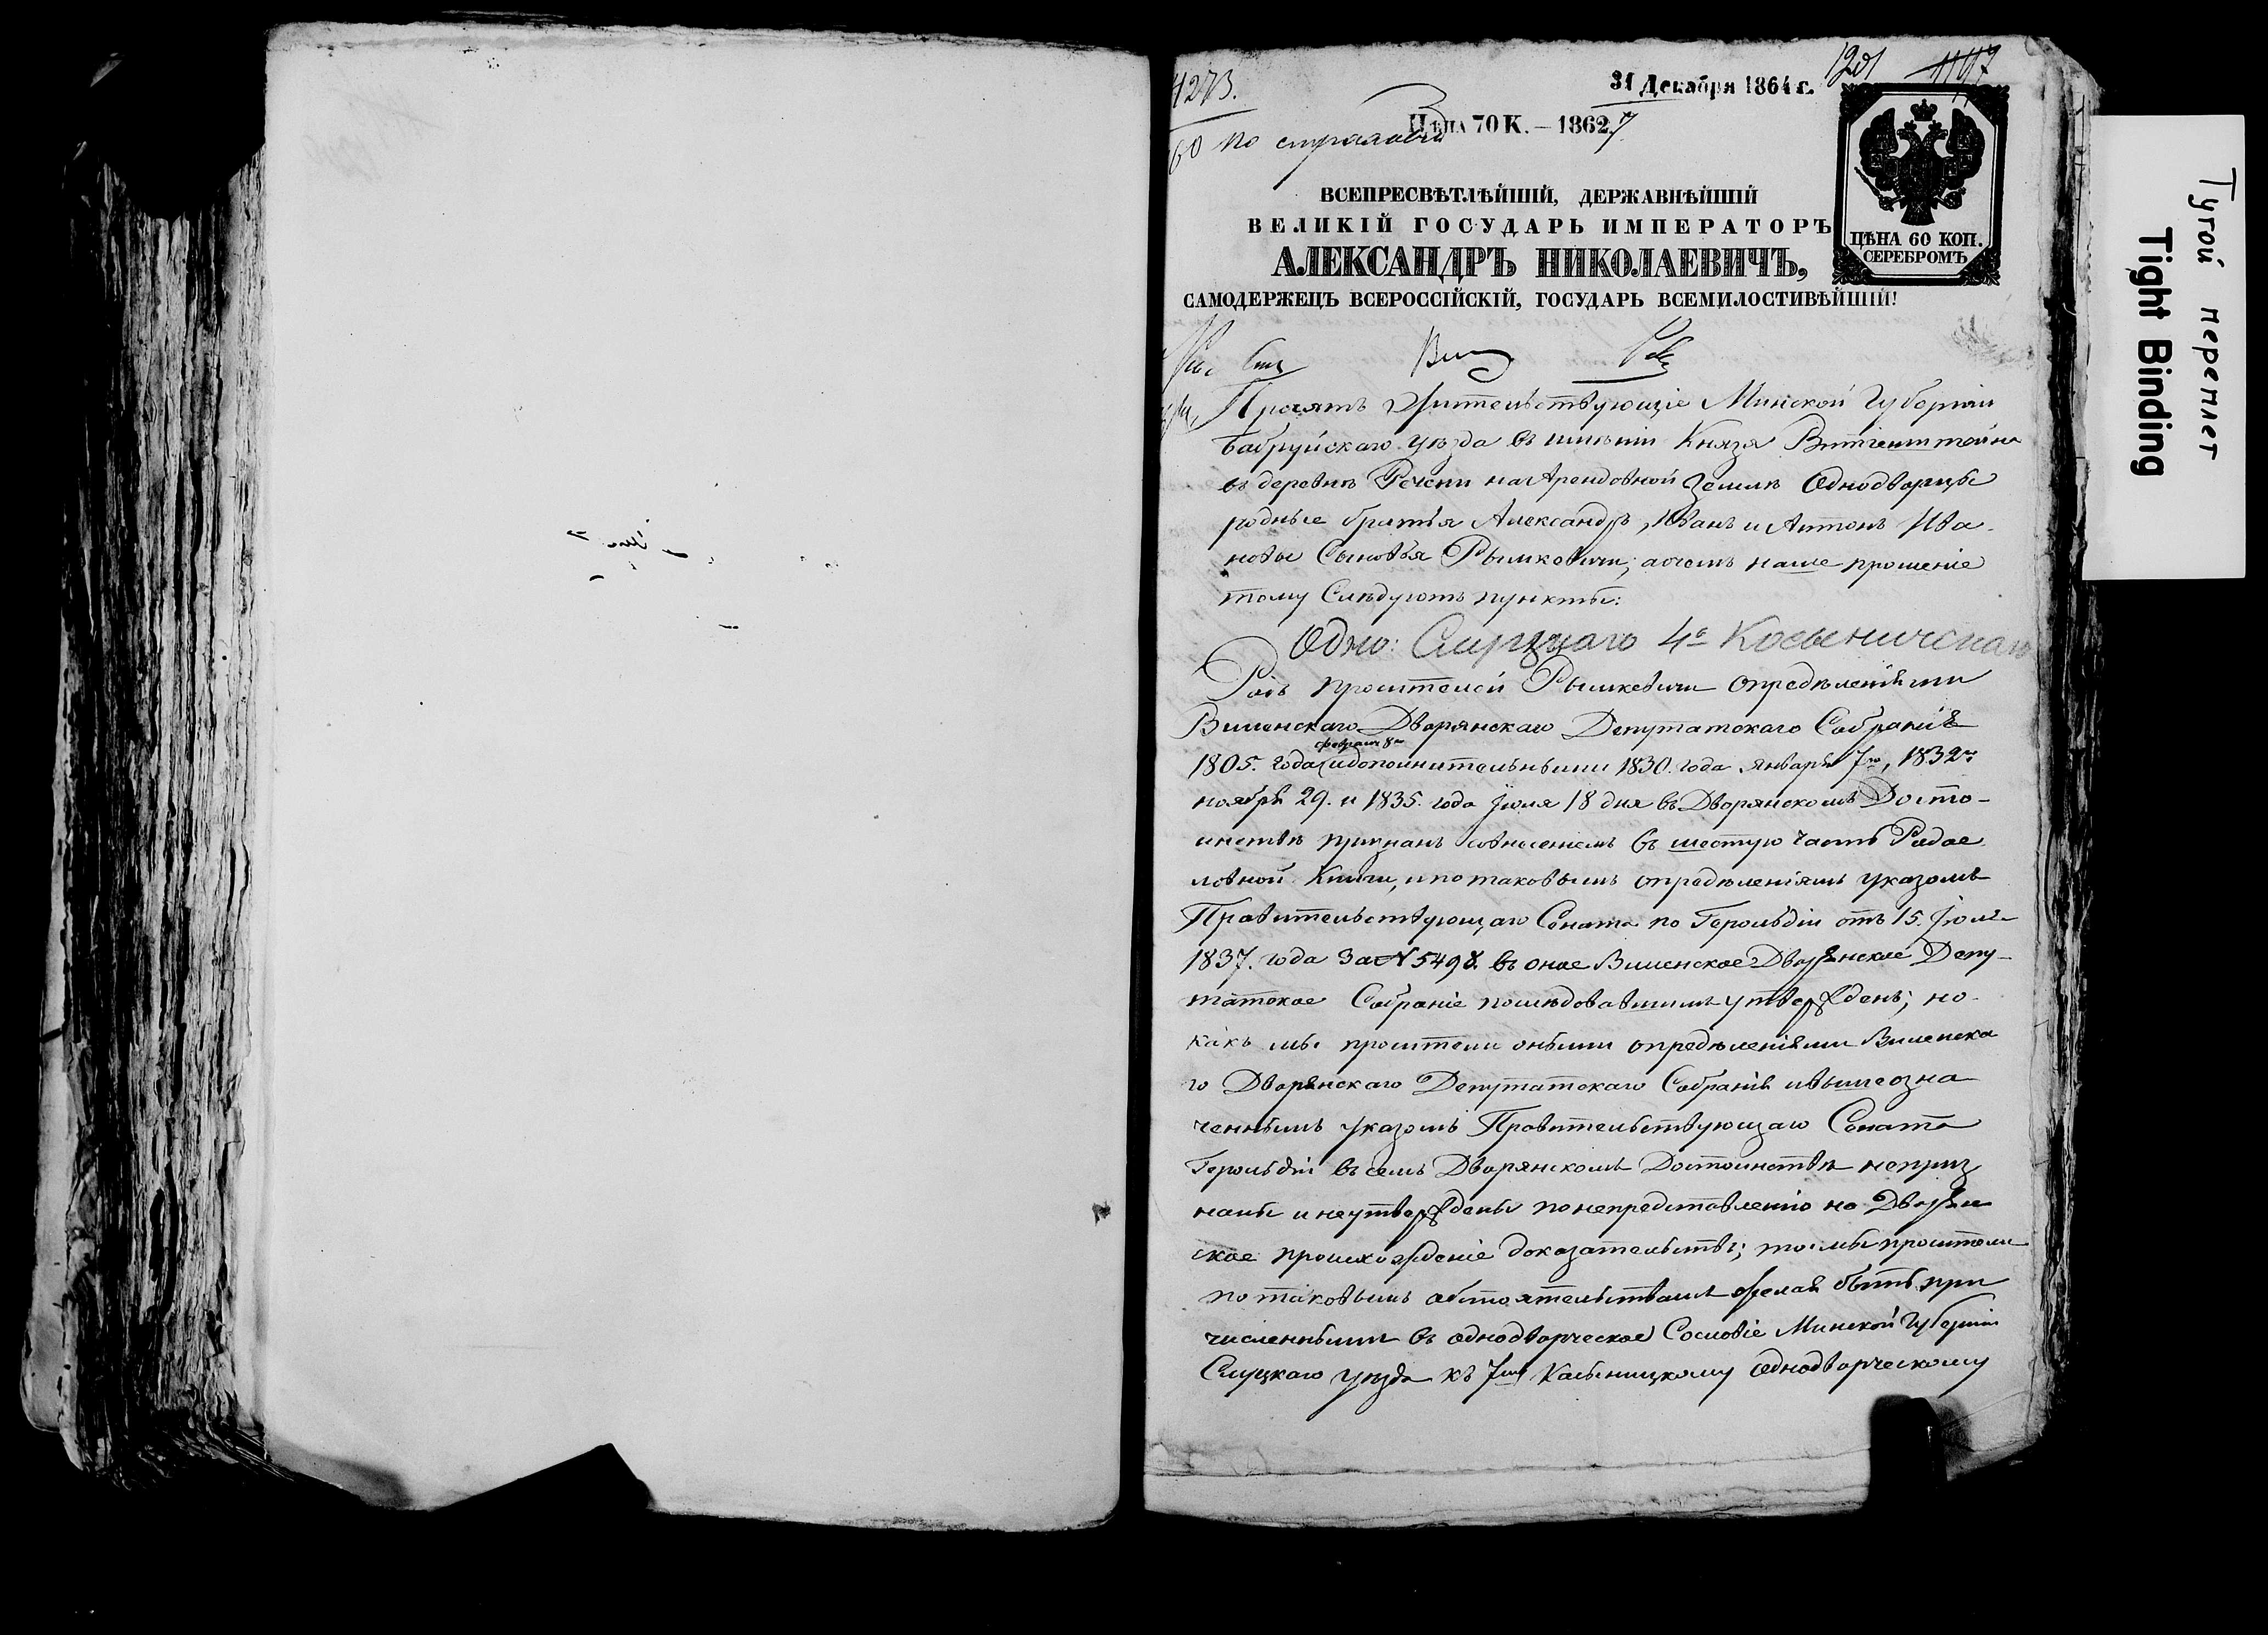 4273.
31 Декабря 1864 г.
1201 1197
60 по
Цѣна 70 К. — 1862
ЦѢНА 60 КОП.
СЕРЕБРОМЪ
ВСЕПРЕСВѢТЛѢЙШІЙ, ДЕРЖАВНѢЙШІЙ
ВЕЛИКІЙ ГОСУДАРЬ ИМПЕРАТОРЪ
АЛЕКСАНДРЪ НИКОЛАЕВИЧЪ,
САМОДЕРЖЕЦЪ ВСЕРОССІЙСКІЙ, ГОСУДАРЬ ВСЕМИЛОСТИВѢЙШІЙ!
Просятъ Жительствующіе Минской Губерніи
Бабруйскаго уѣзда въ имѣніи Князя Витгенштейна
въ деревнѣ Речени на Арендовной Землѣ Однодворцы
родные братья Александръ, Иванъ и Антонъ Ива-
новы Сыновья Рымкевичи; а о чемъ наше прошеніе
тому Слѣдуютъ пункты:
Одно: Слуцкаго 4го
Родъ просителей Рымкевичи опредѣленіями
Виленскаго Дворянскаго Депутатскаго Собранія
февраля 8го
1805. года и дополнительными 1830. года января 7го, 1832го
ноября 29. и 1835. года Іюля 18 дня въ Дворянскомъ Досто-
инствѣ признанъ со внесеніемъ въ шестую часть Радос
ловной Книги, и по таковымъ опредѣленіямъ указомъ
Правительствующаго Сената по Герольдіи отъ 15. Іюля
1837. года За № 5498. въ оное Виленское Дворянское Депу-
татское Собраніе послѣдовавшимъ утвержденъ; но
какъ мы просители оными опредѣленіями Виленска
го Дворянскаго Депутатскаго Собранія и вышеозна
ченнымъ указомъ Правительствующаго Сената
Герольдіи въ семъ Дворянскомъ Достоинствѣ неприз
наны и неутверждены по непредставленію на Дворян
ское происхожденіе доказательствъ; то мы просители
по таковымъ обстоятельствамъ желая быть при
численными въ однодворческое Сословіе Минской Губерніи
Слуцкаго уѣзда къ 7му однодворческому
Тугой переплет
Tight Binding